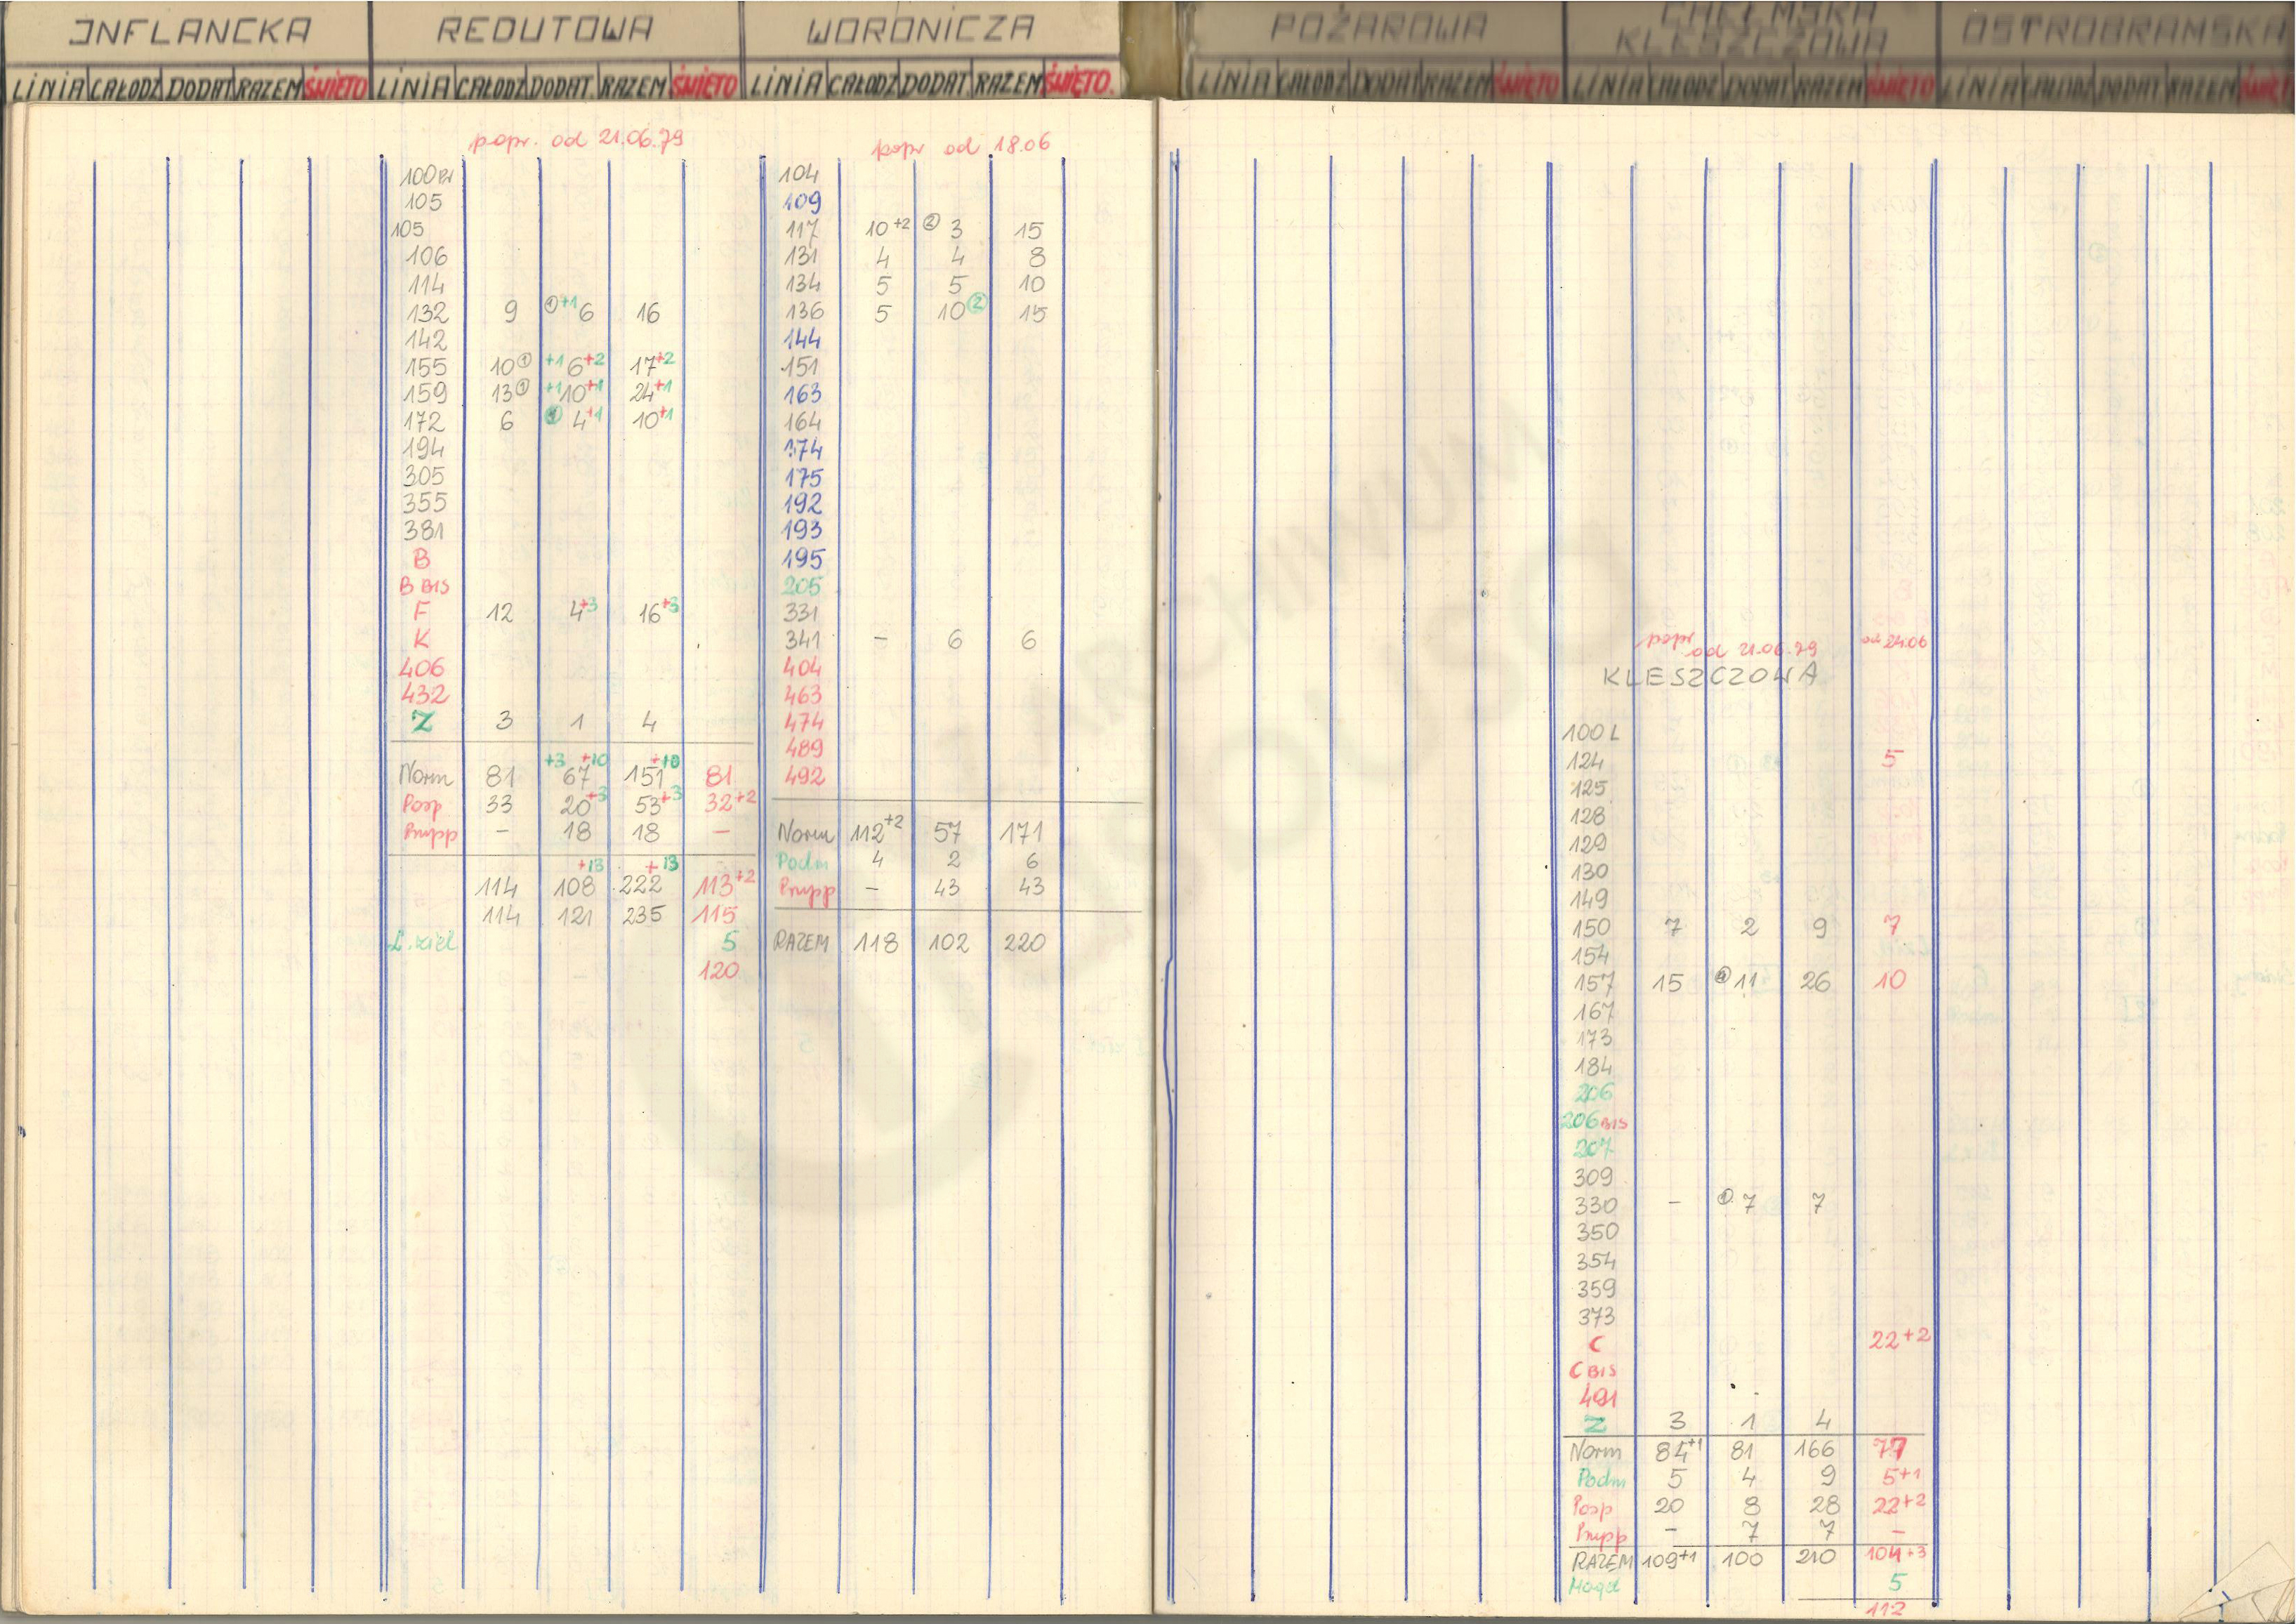 INFLANCKA REDUTOWA WORONICZA POŻAROWA CHEŁMSKA KLESZCZOWA OSTROBRAMSKA
LINIA CAŁODZ DODAT RAZEM ŚWIĘTO LINIA CAŁODZ DODAT. RAZEM ŚWIĘTO LINIA CAŁODZ DODAT. RAZEM ŚWIĘTO. LINIA CAŁODZ DODAT RAZEM ŚWIĘTO LINIA CAŁODZ DODAT RAZEM ŚWIĘTO LINIA CAŁODZ DODAT RAZEM ŚWIĘT
popr. od 21.06.79
100
105
105
106
114
132 9 ①+1 6 16
142
155 10① +1 6+2 17+2
159 13① +1 10+1 24+1
172 6 ① 4+1 10+1
194
305
355
381
B
B BIS
F 12 4+3 16+3
K
406
432
Z 3 1 4
+3 +10 +10
Norm 81 67 151 81
Posp 33 20+3 53+3 32+2
Pmpp – 18 18 –
+13 +13
114 108 222 113+2
114 121 235 115
5
120
popr od 18.06
104
109
117 10+2 ② 3 15
131 4 4 8
134 5 5 10
136 5 10② 15
144
151
163
164
174
175
192
193
195
205
331
341 – 6 6
404
463
474
489
492
Norm 112+2 57 171
Podm 4 2 6
Pmpp – 43 43
RAZEM 118 102 220
popr od 21.06.79
od 24.06
KLESZCZOWA
100 L
124 5
125
128
129
130
149
150 7 2 9 7
154
157 15 ④ 11 26 10
167
173
184
206
206 BIS
207
309
330 – ① 7 7
350
354
359
373
C 22+2
C BIS
491
Z 3 1 4
Norm 84+1 81 166 77
Podm 5 4 9 5+1
Posp 20 8 28 22+2
Pmpp – 7 7 –
RAZEM 109+1 100 210 104+3
5
112